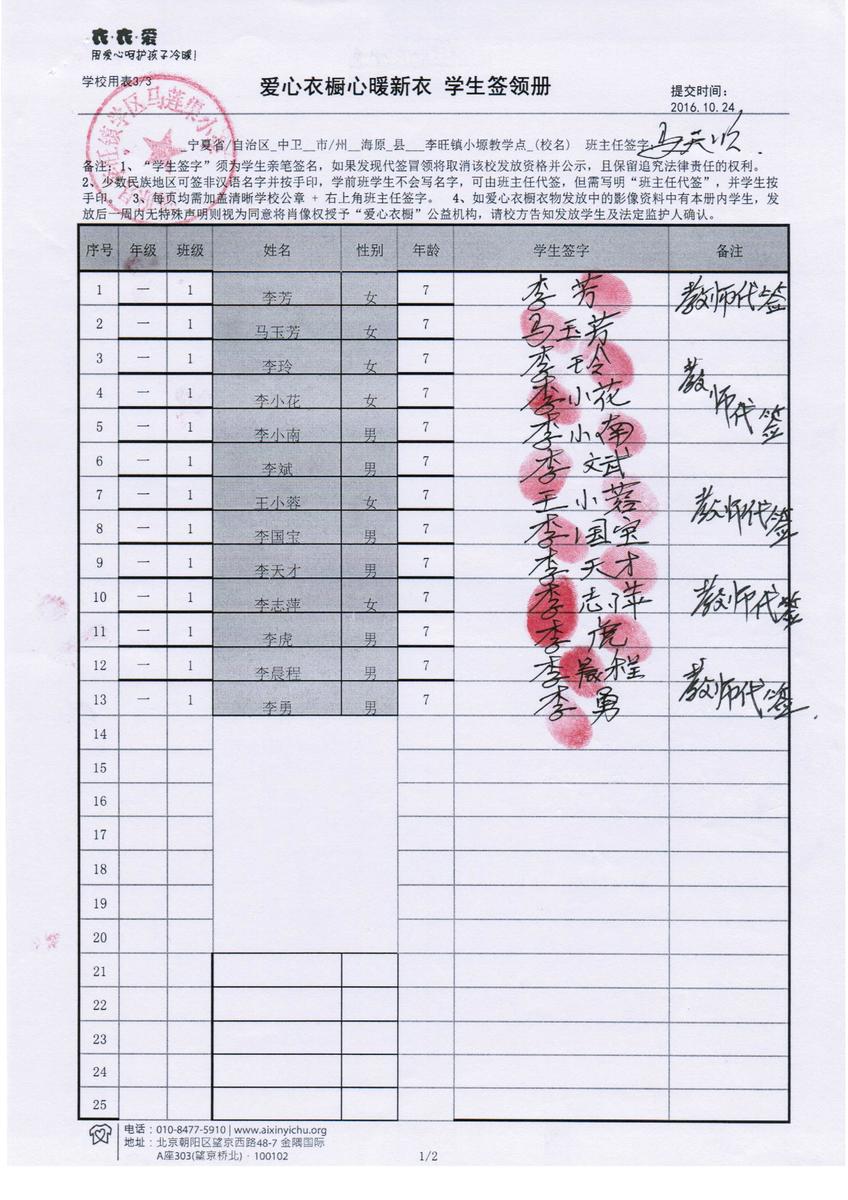 衣·衣·爱
用爱心呵护孩子冷暖!
学校用表3/3
爱心衣橱心暖新衣 学生签领册
提交时间:
2016.10.24
_宁夏省/自治区_中卫__市/州__海原_县___李旺镇小塬教学点_(校名) 班主任签字
备注:1、“学生签字”须为学生亲笔签名,如果发现代签冒领将取消该校发放资格并公示,且保留追究法律责任的权利。
2、少数民族地区可签非汉语名字并按手印,学前班学生不会写名字,可由班主任代签,但需写明“班主任代签”,并学生按
手印。 3、每页均需加盖清晰学校公章 + 右上角班主任签字。 4、如爱心衣橱衣物发放中的影像资料中有本册内学生,发
放后一周内无特殊声明则视为同意将肖像权授予“爱心衣橱”公益机构,请校方告知发放学生及法定监护人确认。
序号 年级 班级 姓名 性别 年龄 学生签字 备注
1 一 1 李芳 女 7 李芳 教师代签
2 一 1 马玉芳 女 7 马玉芳
3 一 1 李玲 女 7 李玲
4 一 1 李小花 女 7 李小花 教师代签
5 一 1 李小南 男 7 李小南
6 一 1 李斌 男 7 李斌
7 一 1 王小蓉 女 7 王小蓉 教师代签
8 一 1 李国宝 男 7 李国宝
9 一 1 李天才 男 7 李天才
10 一 1 李志萍 女 7 李志萍 教师代签
11 一 1 李虎 男 7 李虎
12 一 1 李晨程 男 7 李晨程
13 一 1 李勇 男 7 李勇 教师代签
14
15
16
17
18
19
20
21
22
23
24
25
电话:010-8477-5910 | www.aixinyichu.org
地址:北京朝阳区望京西路48-7 金隅国际
A座303(望京桥北)·100102
1/2